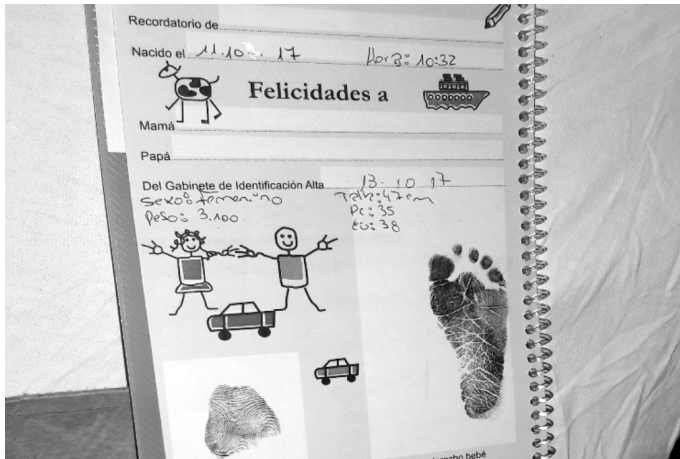 Recordatorio de
Nacido el 11.10 17 Hora: 10:32
Felicidades a
Mamá
Papá
Del Gabinete de Identificación Alta 13.10.17
Sexo: femenino Talla: 47 cm
Peso: 3.100 Pc: 35
EG: 38
recho bebé